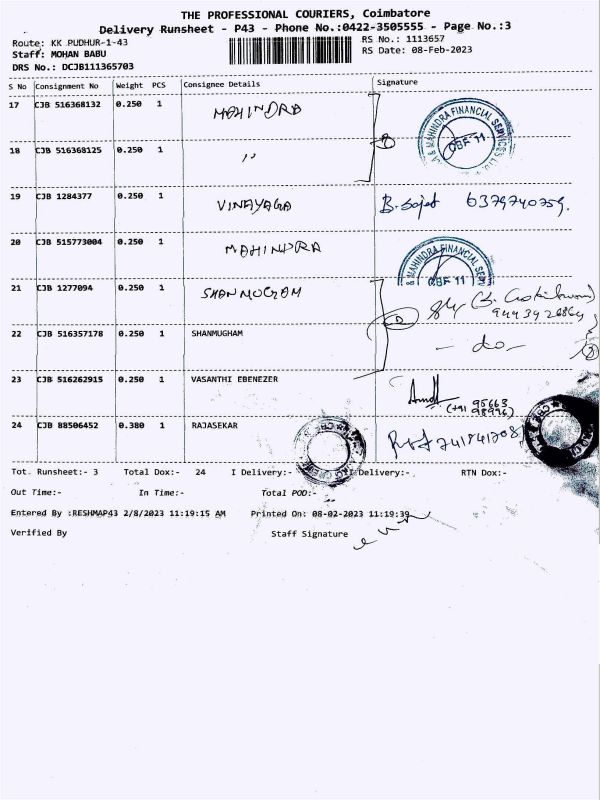 THE PROFESSIONAL COURIERS, Coimbatore
Delivery Runsheet - P43 - Phone No.:0422-3505555 - Page No.:3
Route: KK PUDHUR-1-43 RS No.: 1113657
Staff: MOHAN BABU RS Date: 08-Feb-2023
DRS No.: DCJB111365703
S No Consignment No Weight PCS Consignee Details Signature
17 CJB 516368132 0.250 1 MAHINDRA
18 CJB 516368125 0.250 1 "
& MAHINDRA FINANCIAL SERVICES LTD
CBF 11
19 CJB 1284377 0.250 1 VINAYAGA 6379740759.
20 CJB 515773004 0.250 1 MAHINDRA
& MAHINDRA FINANCIAL SERVICES
CBF 11
21 CJB 1277094 0.250 1 SHANMUGAM
22 CJB 516357178 0.250 1 SHANMUGHAM - do - 2
23 CJB 516262915 0.250 1 VASANTHI EBENEZER
24 CJB 88506452 0.380 1 RAJASEKAR
Tot. Runsheet:- 3 Total Dox:- 24 I Delivery:- II Delivery:- RTN Dox:-
Out Time:- In Time:- Total POD:-
Entered By :RESHMAP43 2/8/2023 11:19:15 AM Printed On: 08-02-2023 11:19:39
Verified By Staff Signature